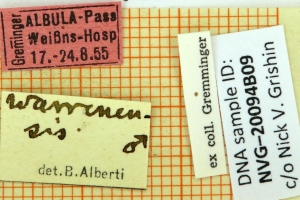 Gremminger
ALBULA-Pass
Weißns-Hosp
17.-24.8.55
warrenen-
sis. ♂
det. B. Alberti
ex coll. Gremminger
DNA sample ID:
NVG-20094B09
c/o Nick V. Grishin